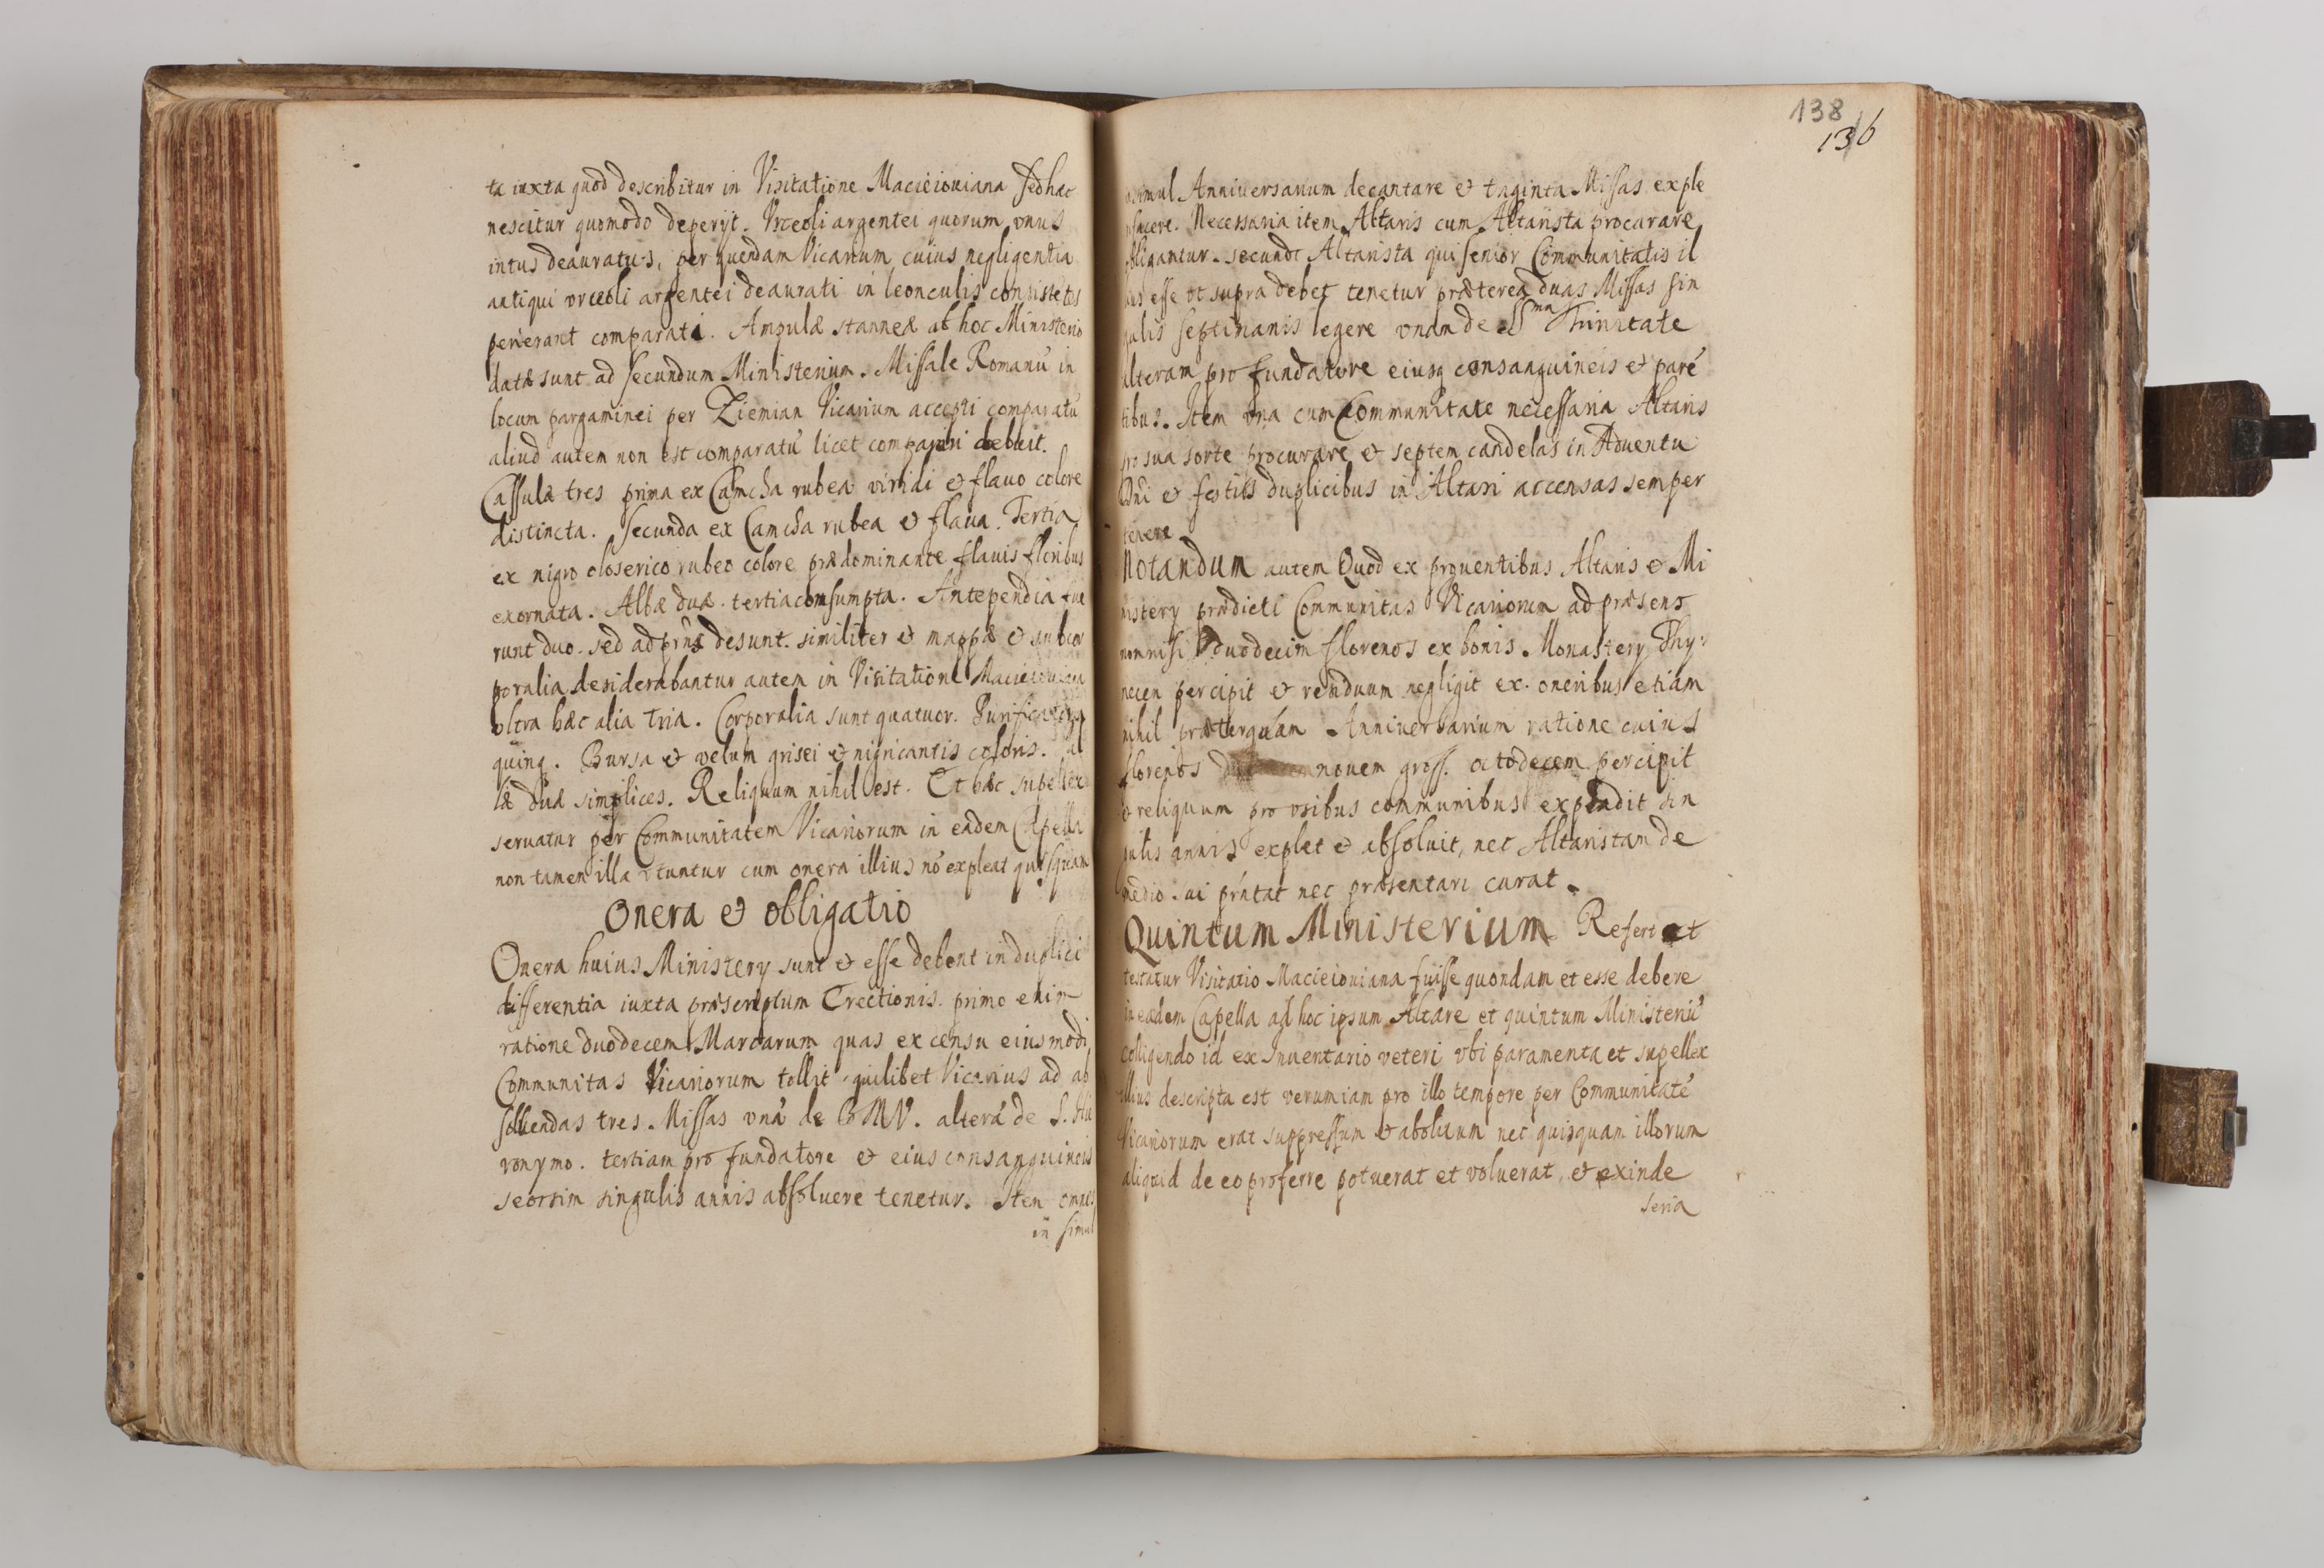 ta iuxta quod describitur in Visitatione Macieiouiana sed hac
nescitur quomodo deperijt. Vrceoli argentei quorum vnus
intus deauratus, per quendam Vicarium cuius negligentia
antiqui vrceoli argentei deaurati in leonculis consistetes
perierant comparati. Ampulæ stanneæ ab hoc Ministerio
datæ sunt ad secundum Ministerium. Missale Romanú in
locum pargaminei per Ziemian Vicarium accepti comparatú
aliud autem non est comparatú licet comparari debuit.
Cassulæ tres prima ex Camcha rubea viridi et flauo colore
distincta. Secunda ex Camcha rubea et flaua. Tertia
ex nigro oloserico rubeo colore prædominante flauis floribus
exornata. Albæ duæ. tertia consumpta. Antependia fue
runt duo. sed ad prńs desunt. similiter et mappæ et subcor
poralia desiderabantur autem in Visitatione Macieiouiana
vltra hæc alia tria. Corporalia sunt quatuor. Purificatoria
quinq. Bursa et velum grisei et nigricantis coloris.
læ duæ simplices. Reliquum nihil est. Et hæc supellex
seruatur per Communitatem Vicariorum in eadem Capella
non tamen illa vtuntur cum onera illius nó expleat quisquam
Onera et obligatio
Onera huius Ministery sunt et esse debent in duplici
differentia iuxta præscriptum Erectionis. primo enim
ratione duodecem Marcarum quas ex censu eiusmodi
Communitas Vicariorum tollit quilibet Vicarius ad ab
soluendas tres Missas vná de BMV. alterá de S. Hie
ronymo. tertiam pro fundatore et eius consanguineis
seorsim singulis annis absoluere tenetur. Item omnes
in simul
138
136
insimul Anniuersarium decantare et triginta Missas exple
facere. Necessaria item Altaris cum Altarista procurare
obligantur. secundo Altarista qui senior Communitatis il
lius esse vt supra debet tenetur præterea duas Missas sin
gulis septimanis legere vnam de SSma Trinitate
alteram pro fundatore eiusq consanguineis et paré
tibus. Item vna cum Communitate necessaria Altaris
pro sua sorte procurare et septem candelas in Aduentu
Dńi et festis duplicibus in Altari accensas semper
tenere
Notandum autem Quod ex prouentibus Altaris et Mi
nistery prædicti Communitas Vicariorum ad præsens
nonnisi duodecim florenos ex bonis Monastery Thy
necen percipit et residuum negligit ex oneribus etiam
nihil præterquam Anniuersarium ratione cuius
florenos nouem gross. octodecem percipit
et reliquum pro vsibus communibus expendit sin
gulis annis explet et absoluit, nec Altaristam de
medio sui prńtat nec præsentari curat.
Quintum Ministerium. Refert et
testatur Visitatio Macieiouiana fuisse quondam et esse debere
in eadem Capella ad hoc ipsum Altare et quintum Ministeriú
colligendo id ex Inuentario veteri vbi paramenta et supellex
illius descripta est verum iam pro illo tempore per Communitaté
Vicariorum erat suppressum et abolitum nec quisquam illorum
aliquid de eo proferre potuerat et voluerat, et exinde
seria